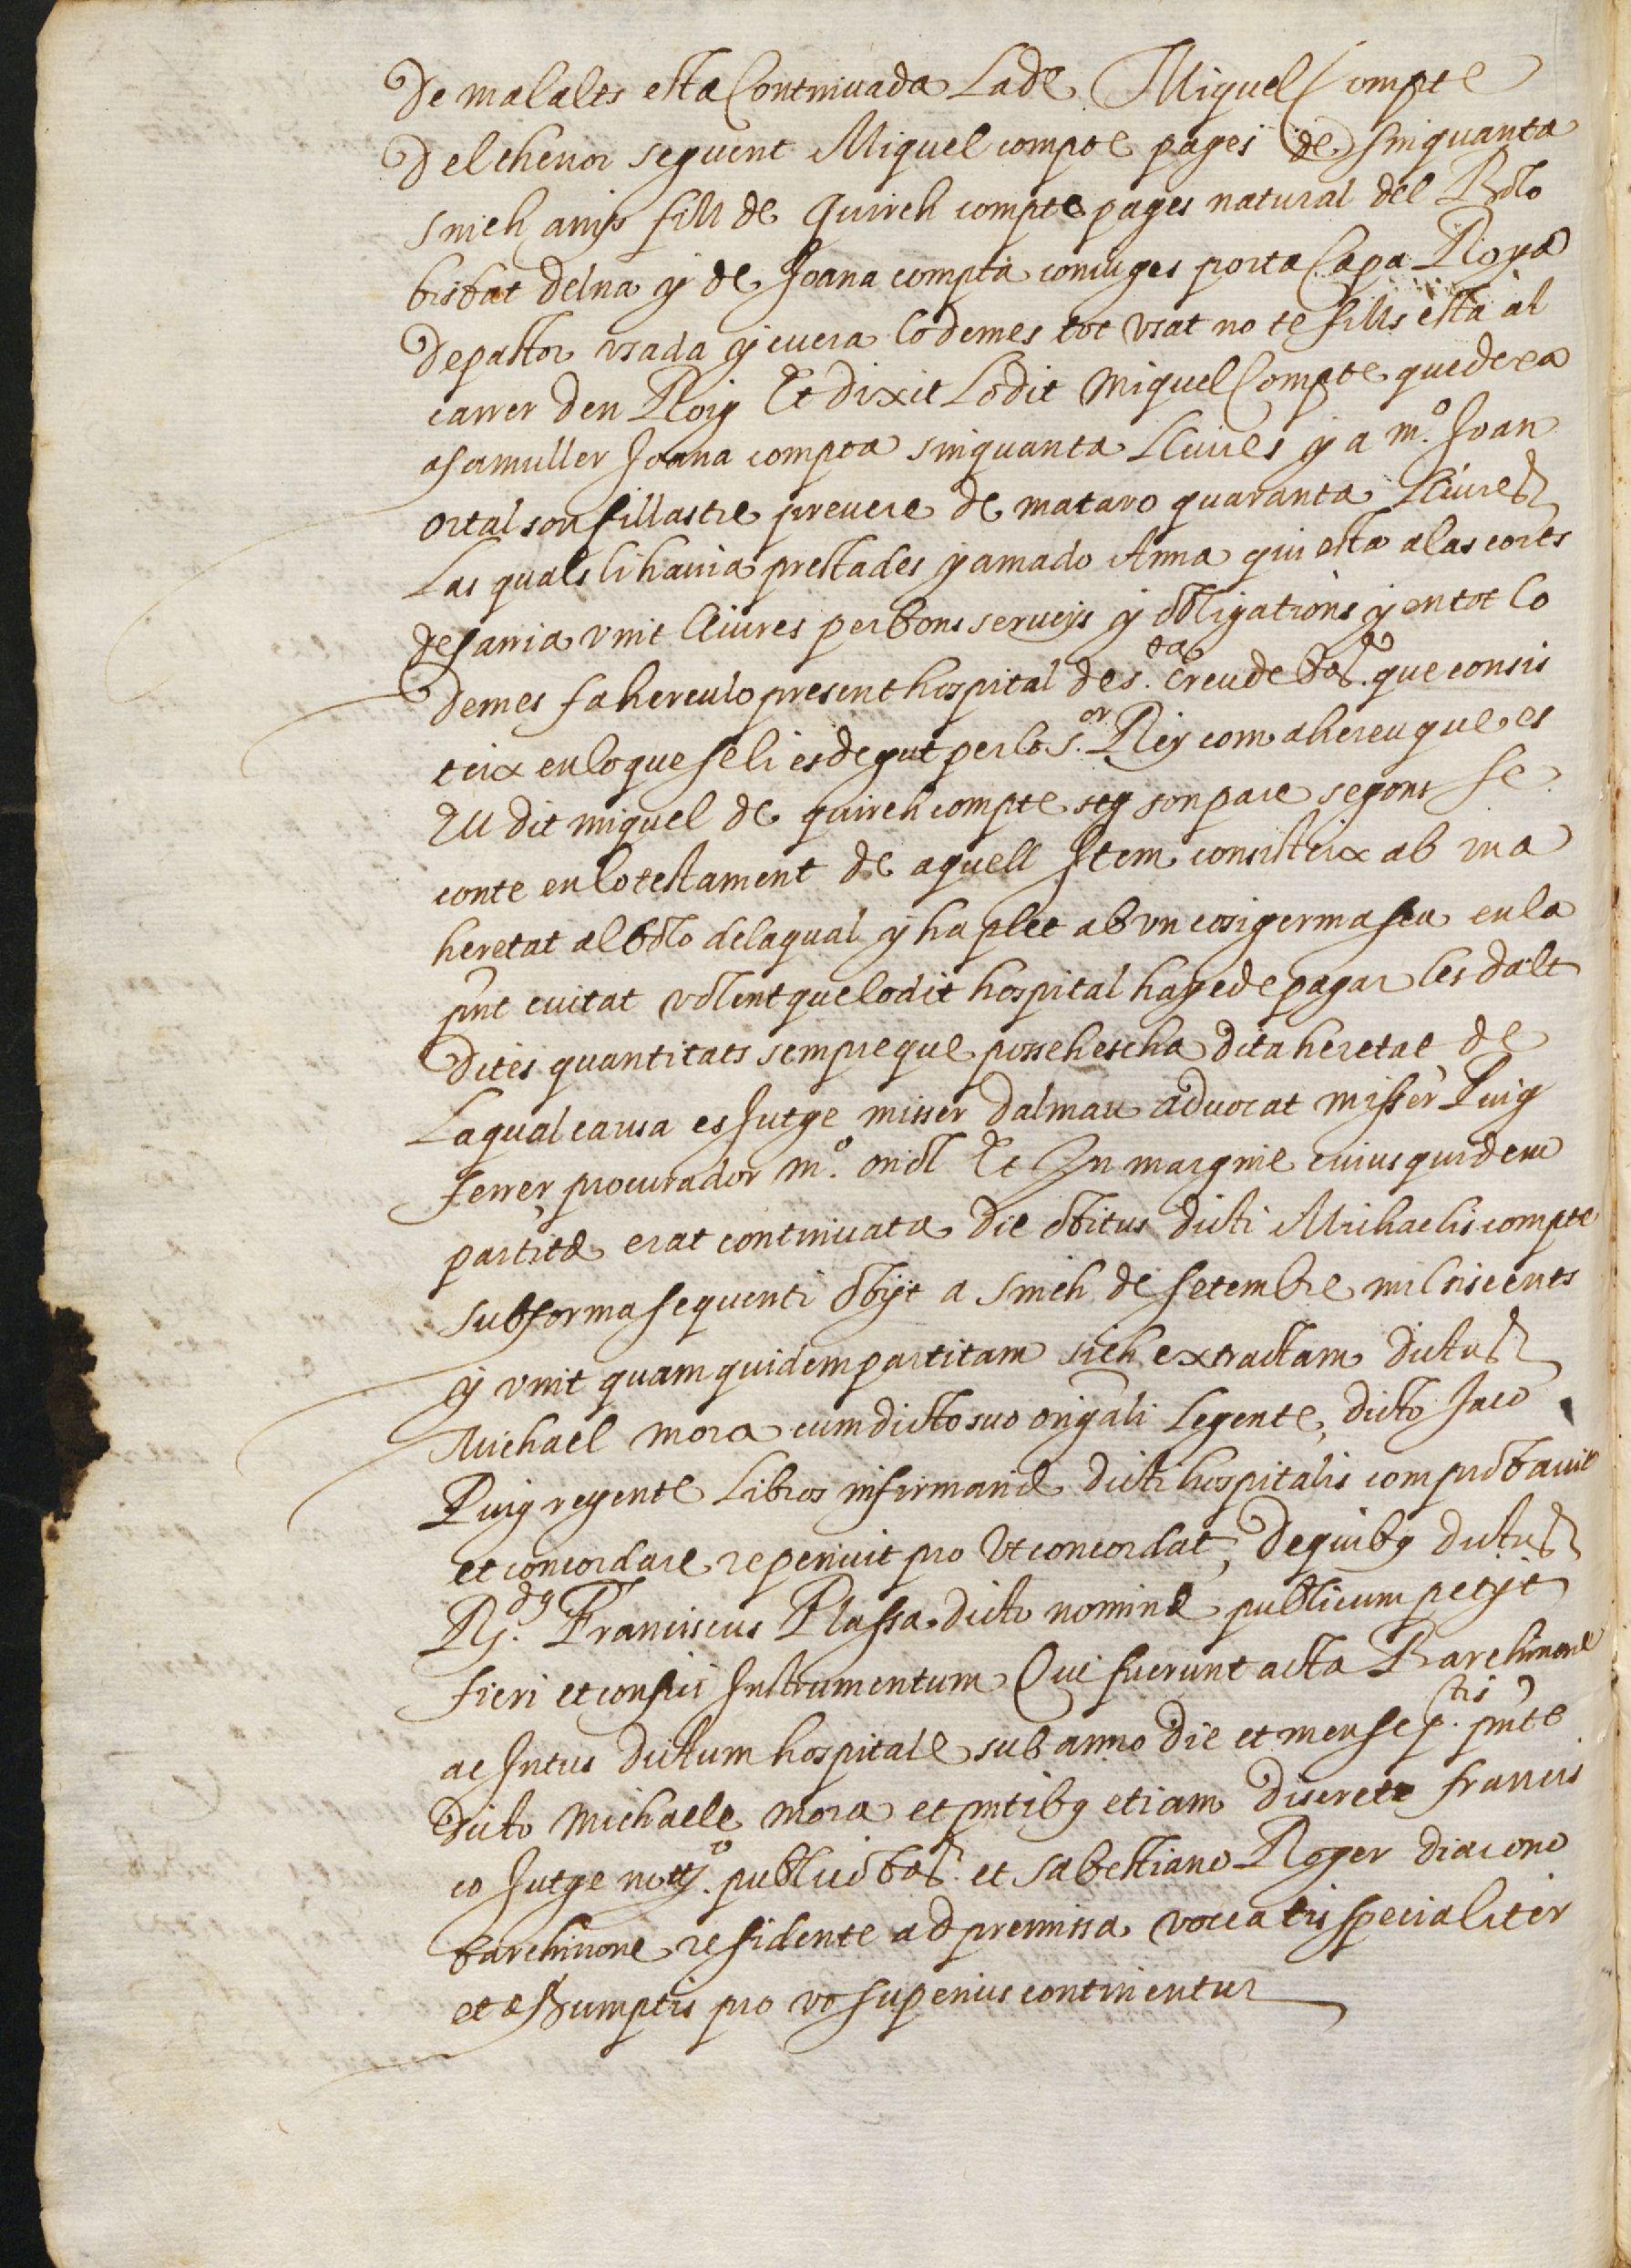 De malalts esta Continuada Lade Miquel Compte
Del thenor seguent Miquel compte pages de sinquanta
sinch anys fill de Quirch compte pages natural del Bolo
bisbat delna y de Joana compta coniuges porta Capa Roya
de pastor usada y evera lo demes tot vsat no te fills esta al
carrer den Roig Et dixit Lodit Miquel Compte que dexa
asa muller Joana compta sinquanta Lliures y a m.º Joan
ortal son fillastre prevere de mataro quaranta Lliures
Las quals li havia prestades y amado Anna qui esta a las corts
de sarria vuit lliures per bons serveys y obligations y en tot lo
demes fa hereu lo present hospital de s.ta Creu de Bar.ª que consis
teix en lo que se li es degut per lo s.or Rey com a hereu que es
Ell dit miquel de quirch compte seg son pare segons se
conte en lo testament de aquell Item consisteix ab una
heretat al bolo de la qual y ha plet ab vn cosi germa seu en la
pnt ciutat volent que lo dit hospital haye de pagar les dalt
Dites quantitats sempre que possehescha dita heretat de
La qual causa es Jutge misser Dalmau advocat misser Puig
ferrer procurador m.º oriol Et In margine cuiusquidem
partite erat continuata die obitus dicti Michaelis compte
sub forma sequenti obijt a sinch de setembre mil siscents
y vuit quam quidem partitam sich extractam dictus
Michael mora cum dicto suo origāli Legente, dicto Jaco
Puig regente Libros infirmarie dicti hospitalis comprobavit
et concordare reperiuit pro vt concordat, De quibq dictus
R.dq Franciscus Plassa dicto nomine publicum petijt
fieri et confici Instrumentum Que fuerunt acta Barchinone
ac Intus dictum hospitale sub anno die et mense p.ctis pnte
dicto Michaele mora et pntibq etiam discreto francis
co Jutge notº. publico bar. et sabestiano Roger diacono
barchinone residente ad premissa voccatis specialiter
et assumptis pro vt superius continentur